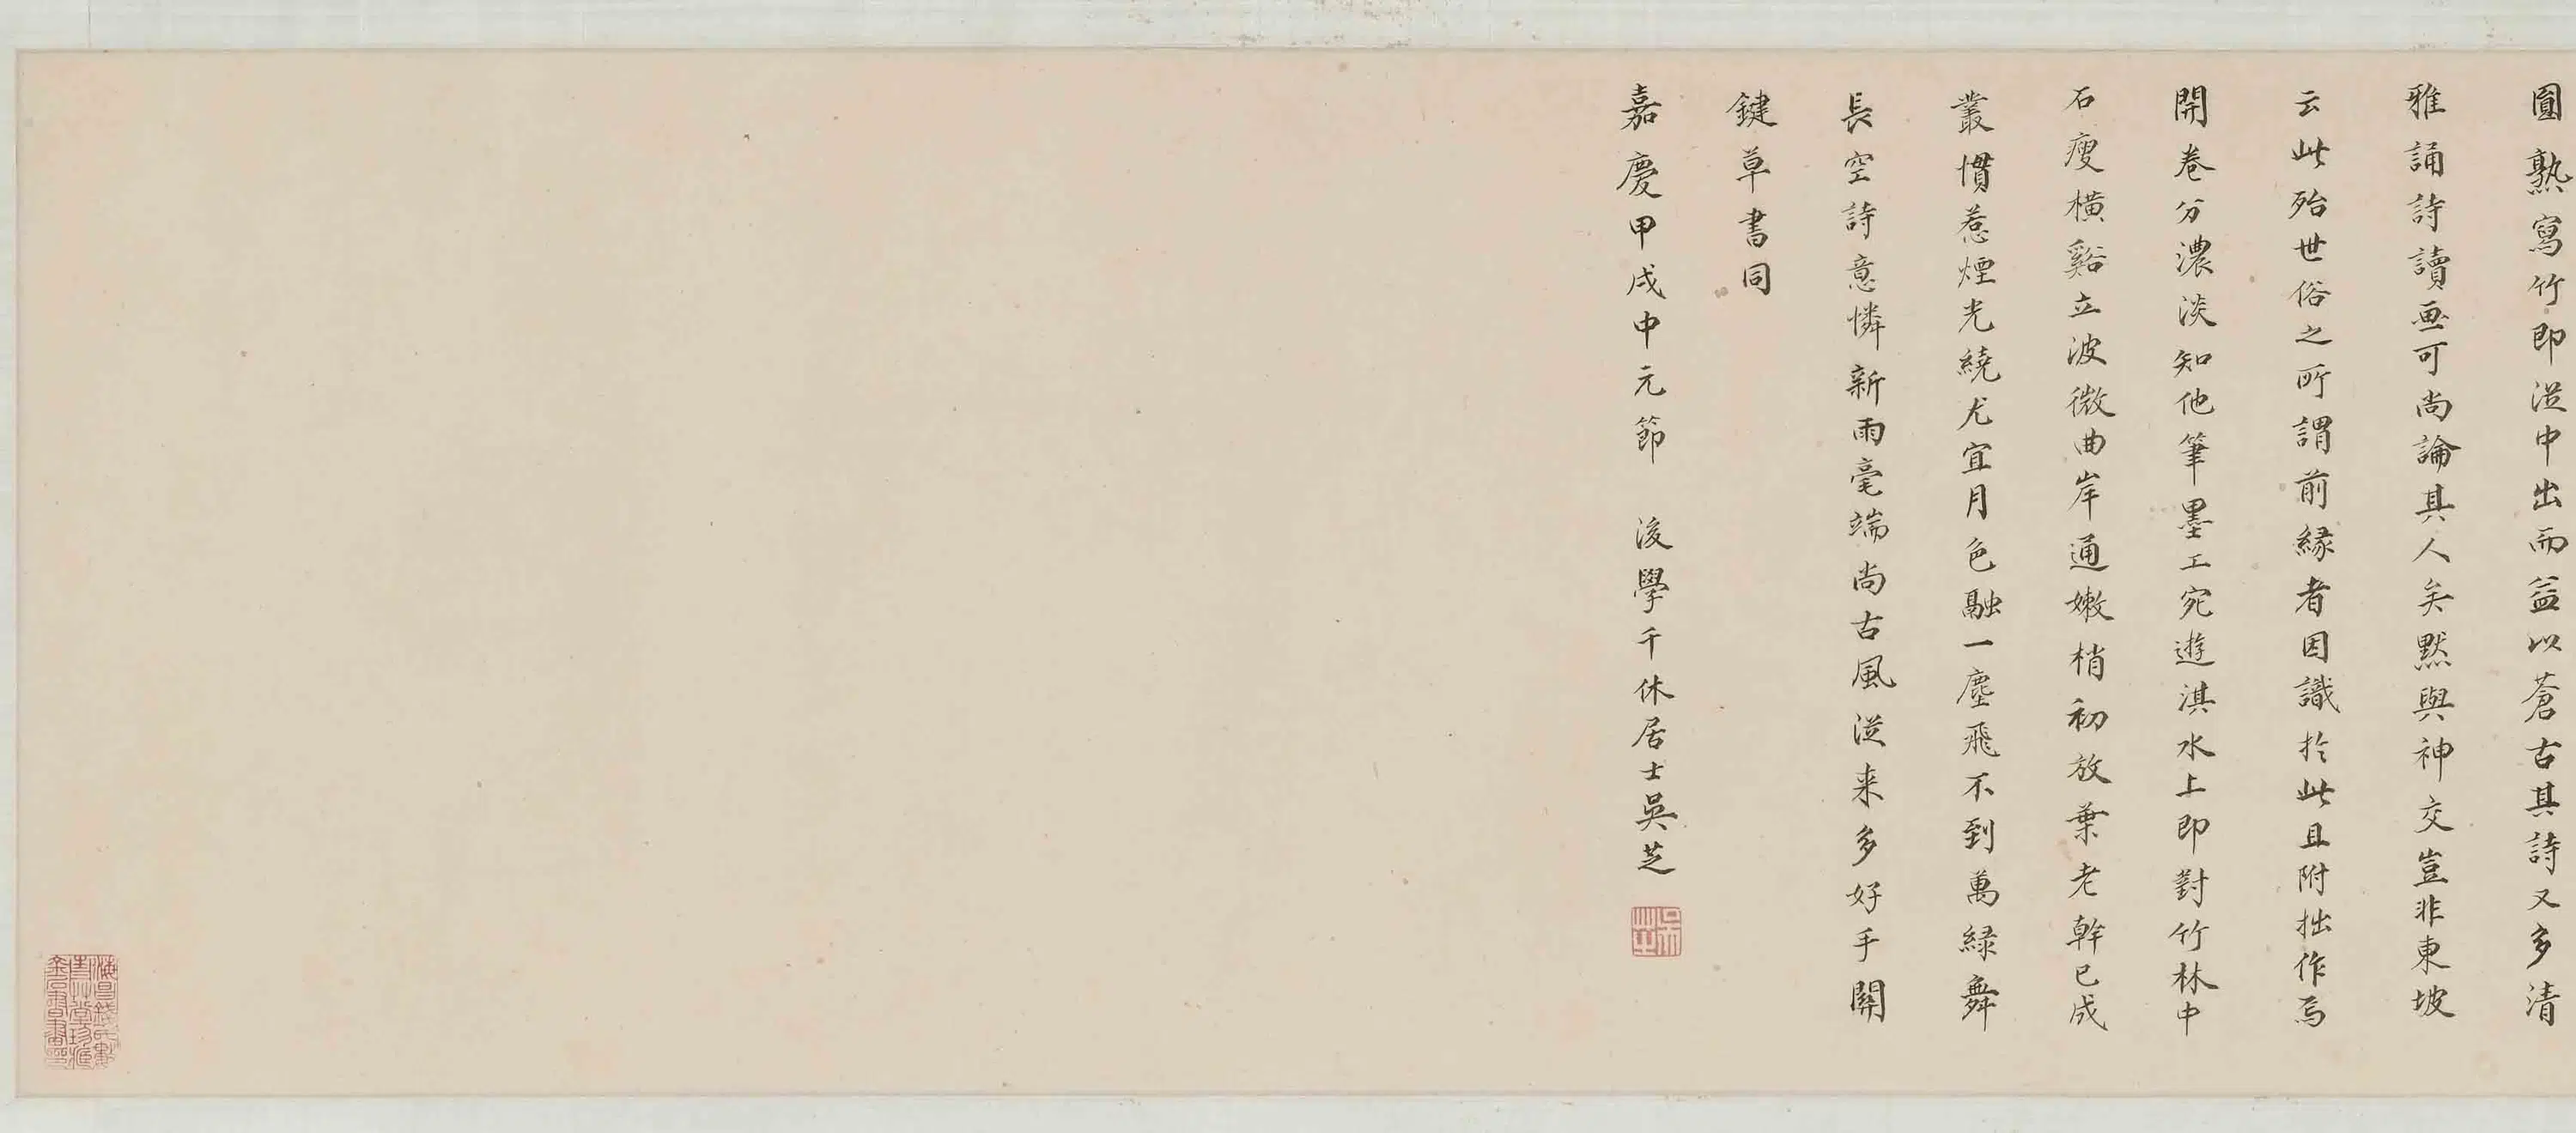 圓熟寫竹即從中出而益以蒼古其詩又多清
雅誦詩讀画可尚論其人矣默與神交豈非東坡
云此殆世俗之所謂前緣者因識於此且附拙作焉
開卷分濃淡知他筆墨工宛遊淇水上即對竹林中
石瘦橫谿立波微曲岸通嫩梢初放葉老幹已成
叢慣惹煙光繞尤宜月色融一塵飛不到萬綠舞
長空詩意憐新雨毫端尚古風從来多好手關
鍵草書同
嘉慶甲戌中元節 後學千休居士吳芝
吳芝